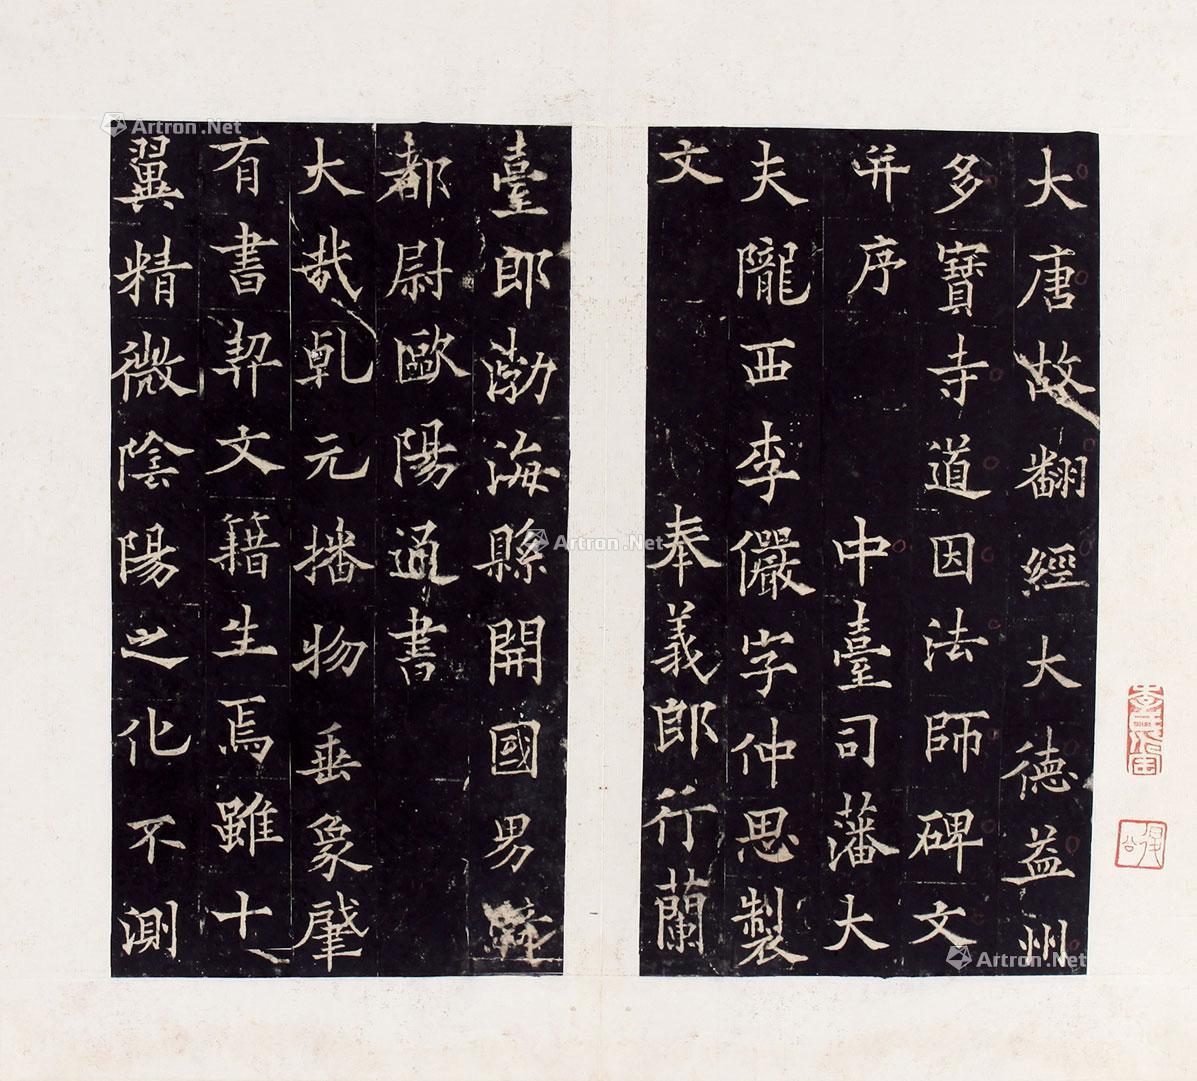 大唐故翻經大德益州
多寶寺道因法師碑文
并序　中臺司藩大
夫隴西李儼字仲思製
文　奉義郎行蘭
臺郎渤海縣開國男
都尉歐陽通書
大哉乹元播物垂象肇
有書契文籍生焉雖十
翼精微陰陽之化不測
Artron.Net
Artron.Net
Artron.Net